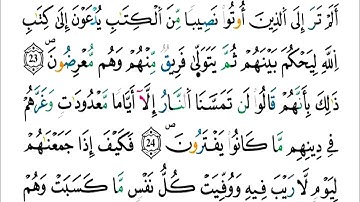 أَلَمْ تَرَ إِلَى ٱلَّذِينَ أُوتُوا۟ نَصِيبًا مِّنَ ٱلْكِتَٰبِ يُدْعَوْنَ إِلَىٰ كِتَٰبِ
ٱللَّهِ لِيَحْكُمَ بَيْنَهُمْ ثُمَّ يَتَوَلَّىٰ فَرِيقٌ مِّنْهُمْ وَهُم مُّعْرِضُونَ ۖ 23
ذَٰلِكَ بِأَنَّهُمْ قَالُوا۟ لَن تَمَسَّنَا ٱلنَّارُ إِلَّآ أَيَّامًا مَّعْدُودَٰتٍ وَغَرَّهُمْ
فِى دِينِهِم مَّا كَانُوا۟ يَفْتَرُونَ 24 فَكَيْفَ إِذَا جَمَعْنَٰهُمْ
لِيَوْمٍ لَّا رَيْبَ فِيهِ وَوُفِّيَتْ كُلُّ نَفْسٍ مَّا كَسَبَتْ وَهُمْ